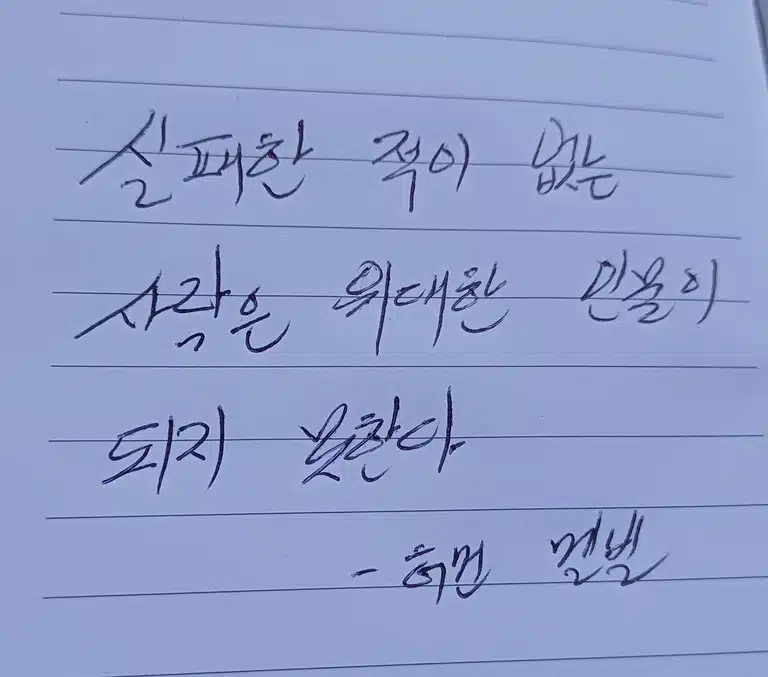 실패한 적이 없는
사람은 위대한 인물이
되지 못한다.
- 허먼 멜빌